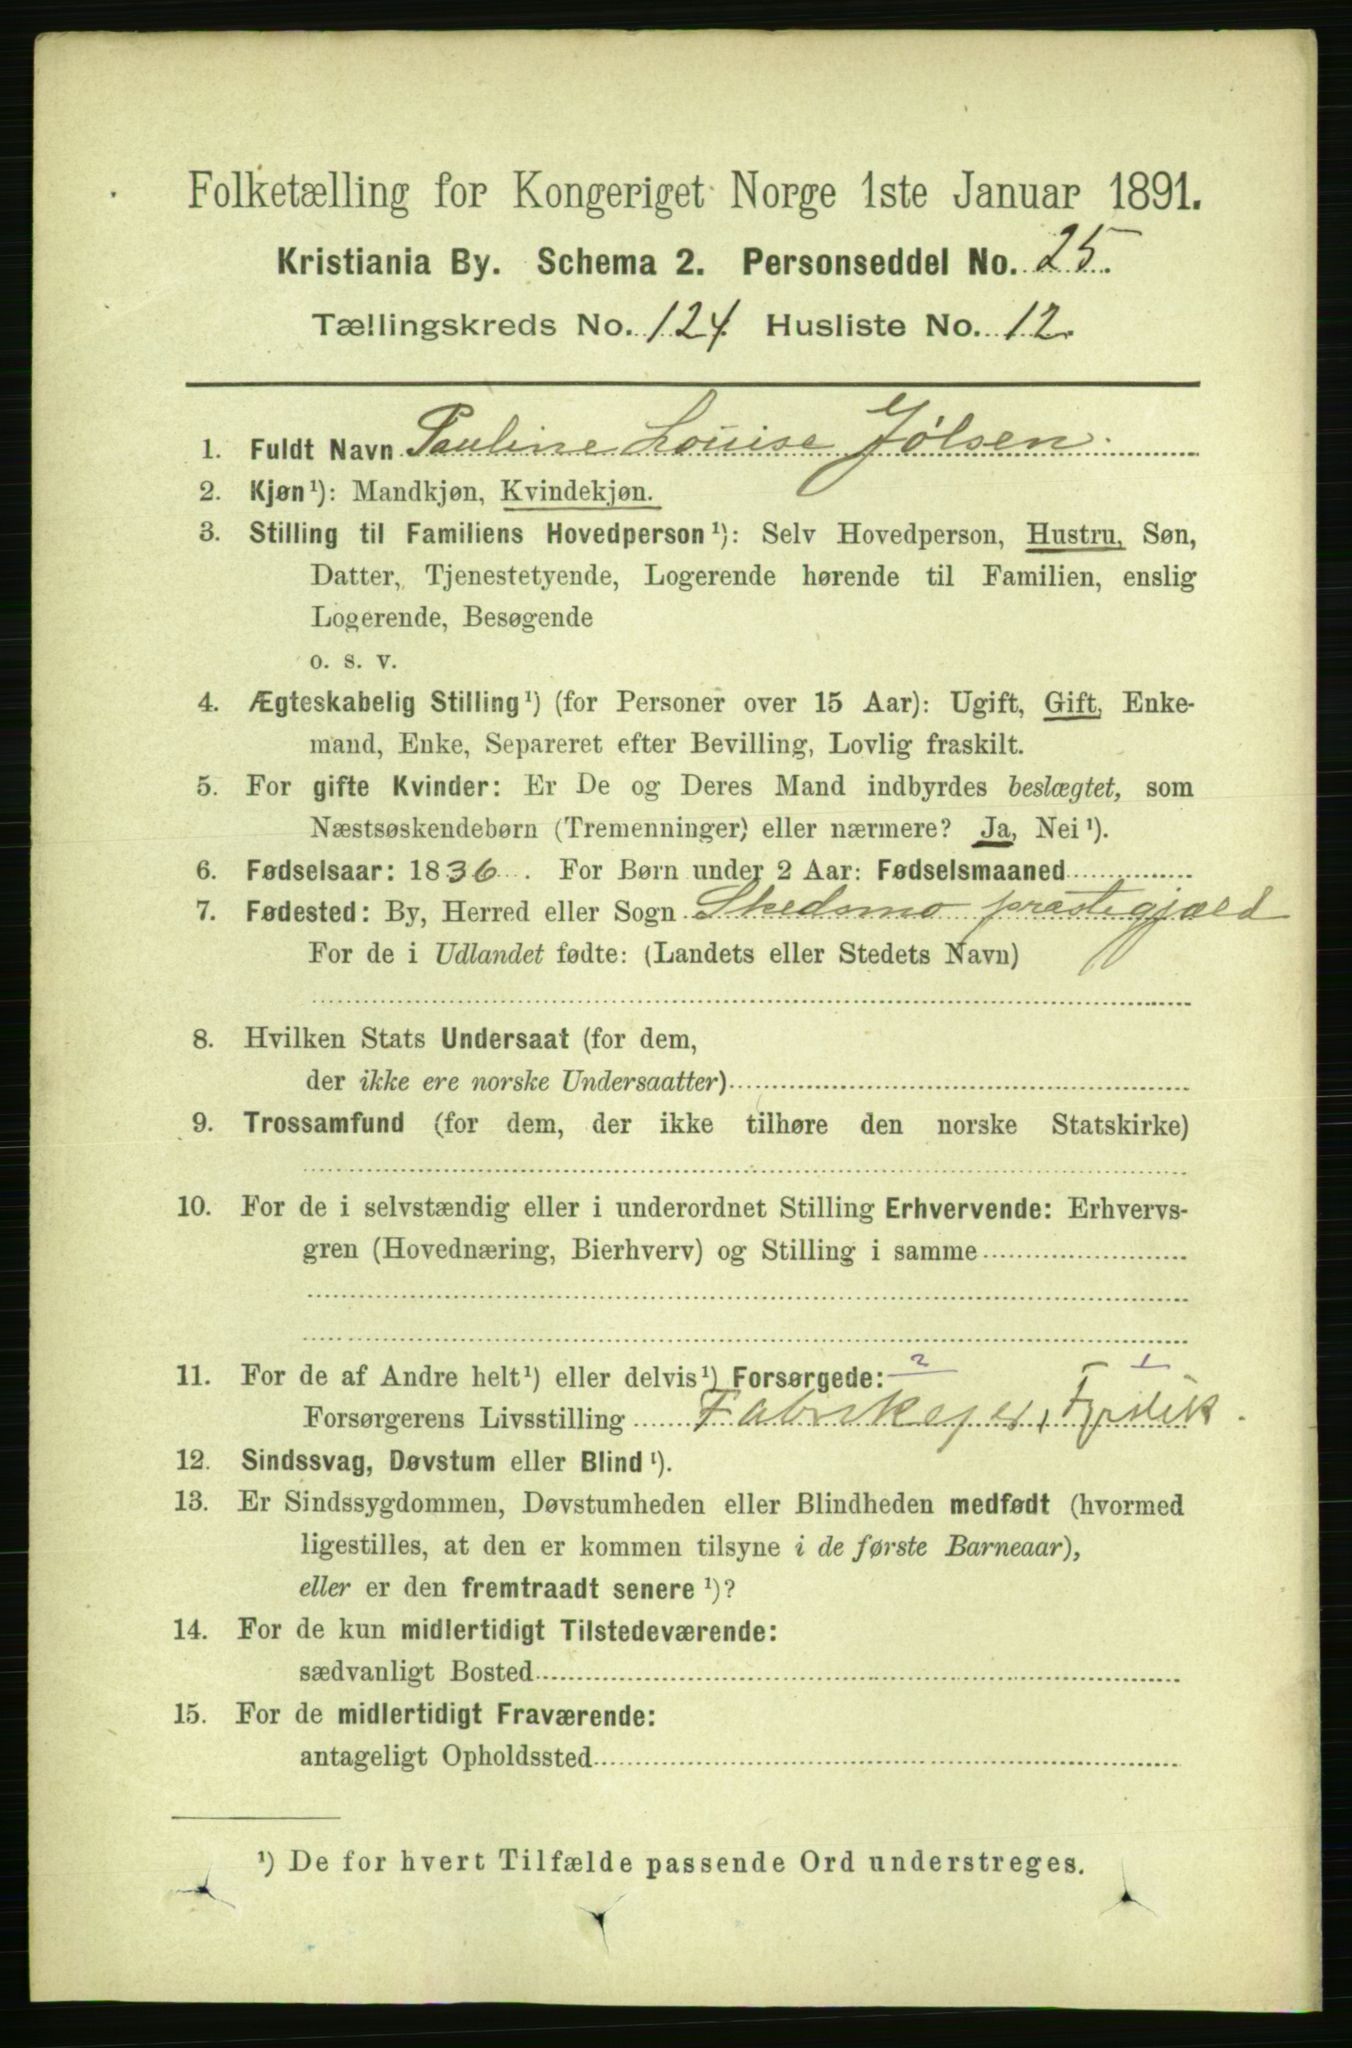 Folketælling for Kongeriget Norge 1ste Januar 1891.
Kristiania By. Schema 2. Personseddel No. 25.
Tællingskreds No. 124 Husliste No. 12.
1. Fuldt Navn Pauline Louise Jølsen.
2. Kjøn¹): Mandkjøn, Kvindekjøn.
3. Stilling til Familiens Hovedperson¹): Selv Hovedperson, Hustru, Søn,
Datter, Tjenestetyende, Logerende hørende til Familien, enslig
Logerende, Besøgende
o. s. v.
4. Ægteskabelig Stilling¹) (for Personer over 15 Aar): Ugift, Gift, Enke-
mand, Enke, Separeret efter Bevilling, Lovlig fraskilt.
5. For gifte Kvinder: Er De og Deres Mand indbyrdes beslægtet, som
Næstsøskendebørn (Tremenninger) eller nærmere? Ja, Nei¹).
6. Fødselsaar: 1836. For Børn under 2 Aar: Fødselsmaaned
7. Fødested: By, Herred eller Sogn Skedsmo præstegjæld
For de i Udlandet fødte: (Landets eller Stedets Navn)
8. Hvilken Stats Undersaat (for dem,
der ikke ere norske Undersaatter)
9. Trossamfund (for dem, der ikke tilhøre den norske Statskirke)
10. For de i selvstændig eller i underordnet Stilling Erhvervende: Erhvervs-
gren (Hovednæring, Bierhverv) og Stilling i samme
11. For de af Andre helt¹) eller delvis¹) Forsørgede: 2 1
Forsørgerens Livsstilling Fabrikejer,
12. Sindssvag, Døvstum eller Blind¹).
13. Er Sindssygdommen, Døvstumheden eller Blindheden medfødt (hvormed
ligestilles, at den er kommen tilsyne i de første Barneaar),
eller er den fremtraadt senere¹)?
14. For de kun midlertidigt Tilstedeværende:
sædvanligt Bosted
15. For de midlertidigt Fraværende:
antageligt Opholdssted
¹) De for hvert Tilfælde passende Ord understreges.